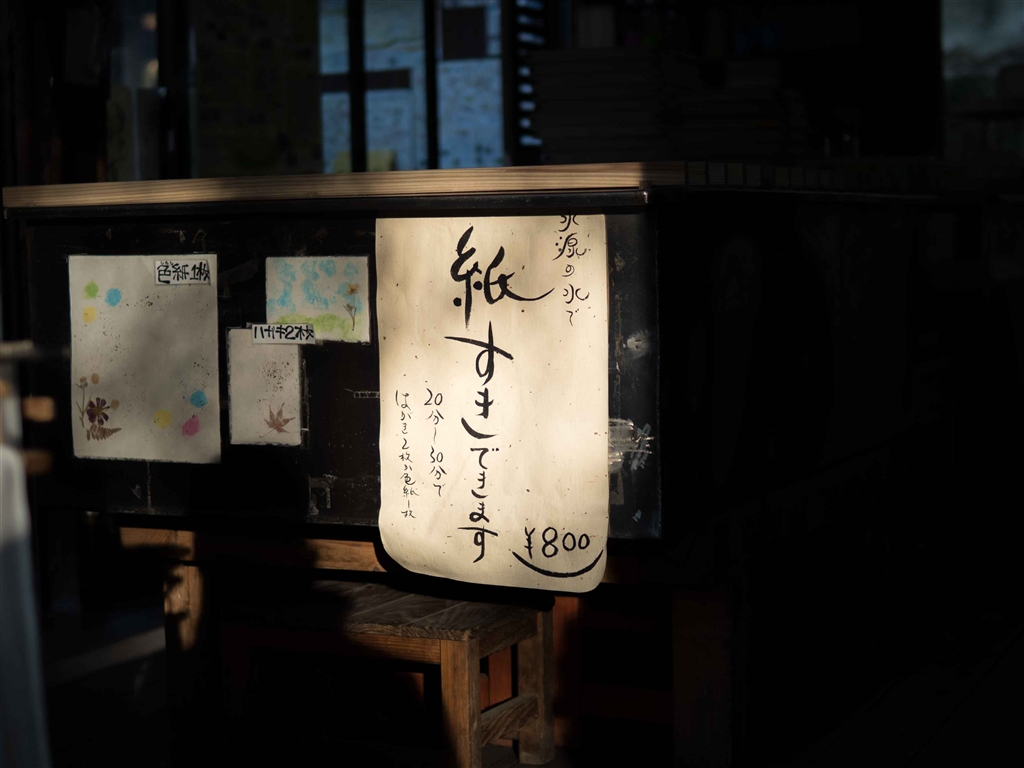 水源の水で
紙すきできます
20分〜30分で
はがき2枚か色紙一枚
¥800
色紙1枚
ハガキ2枚